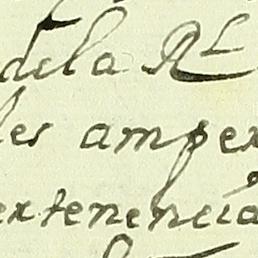 dela Rl
les ampex
extenencia